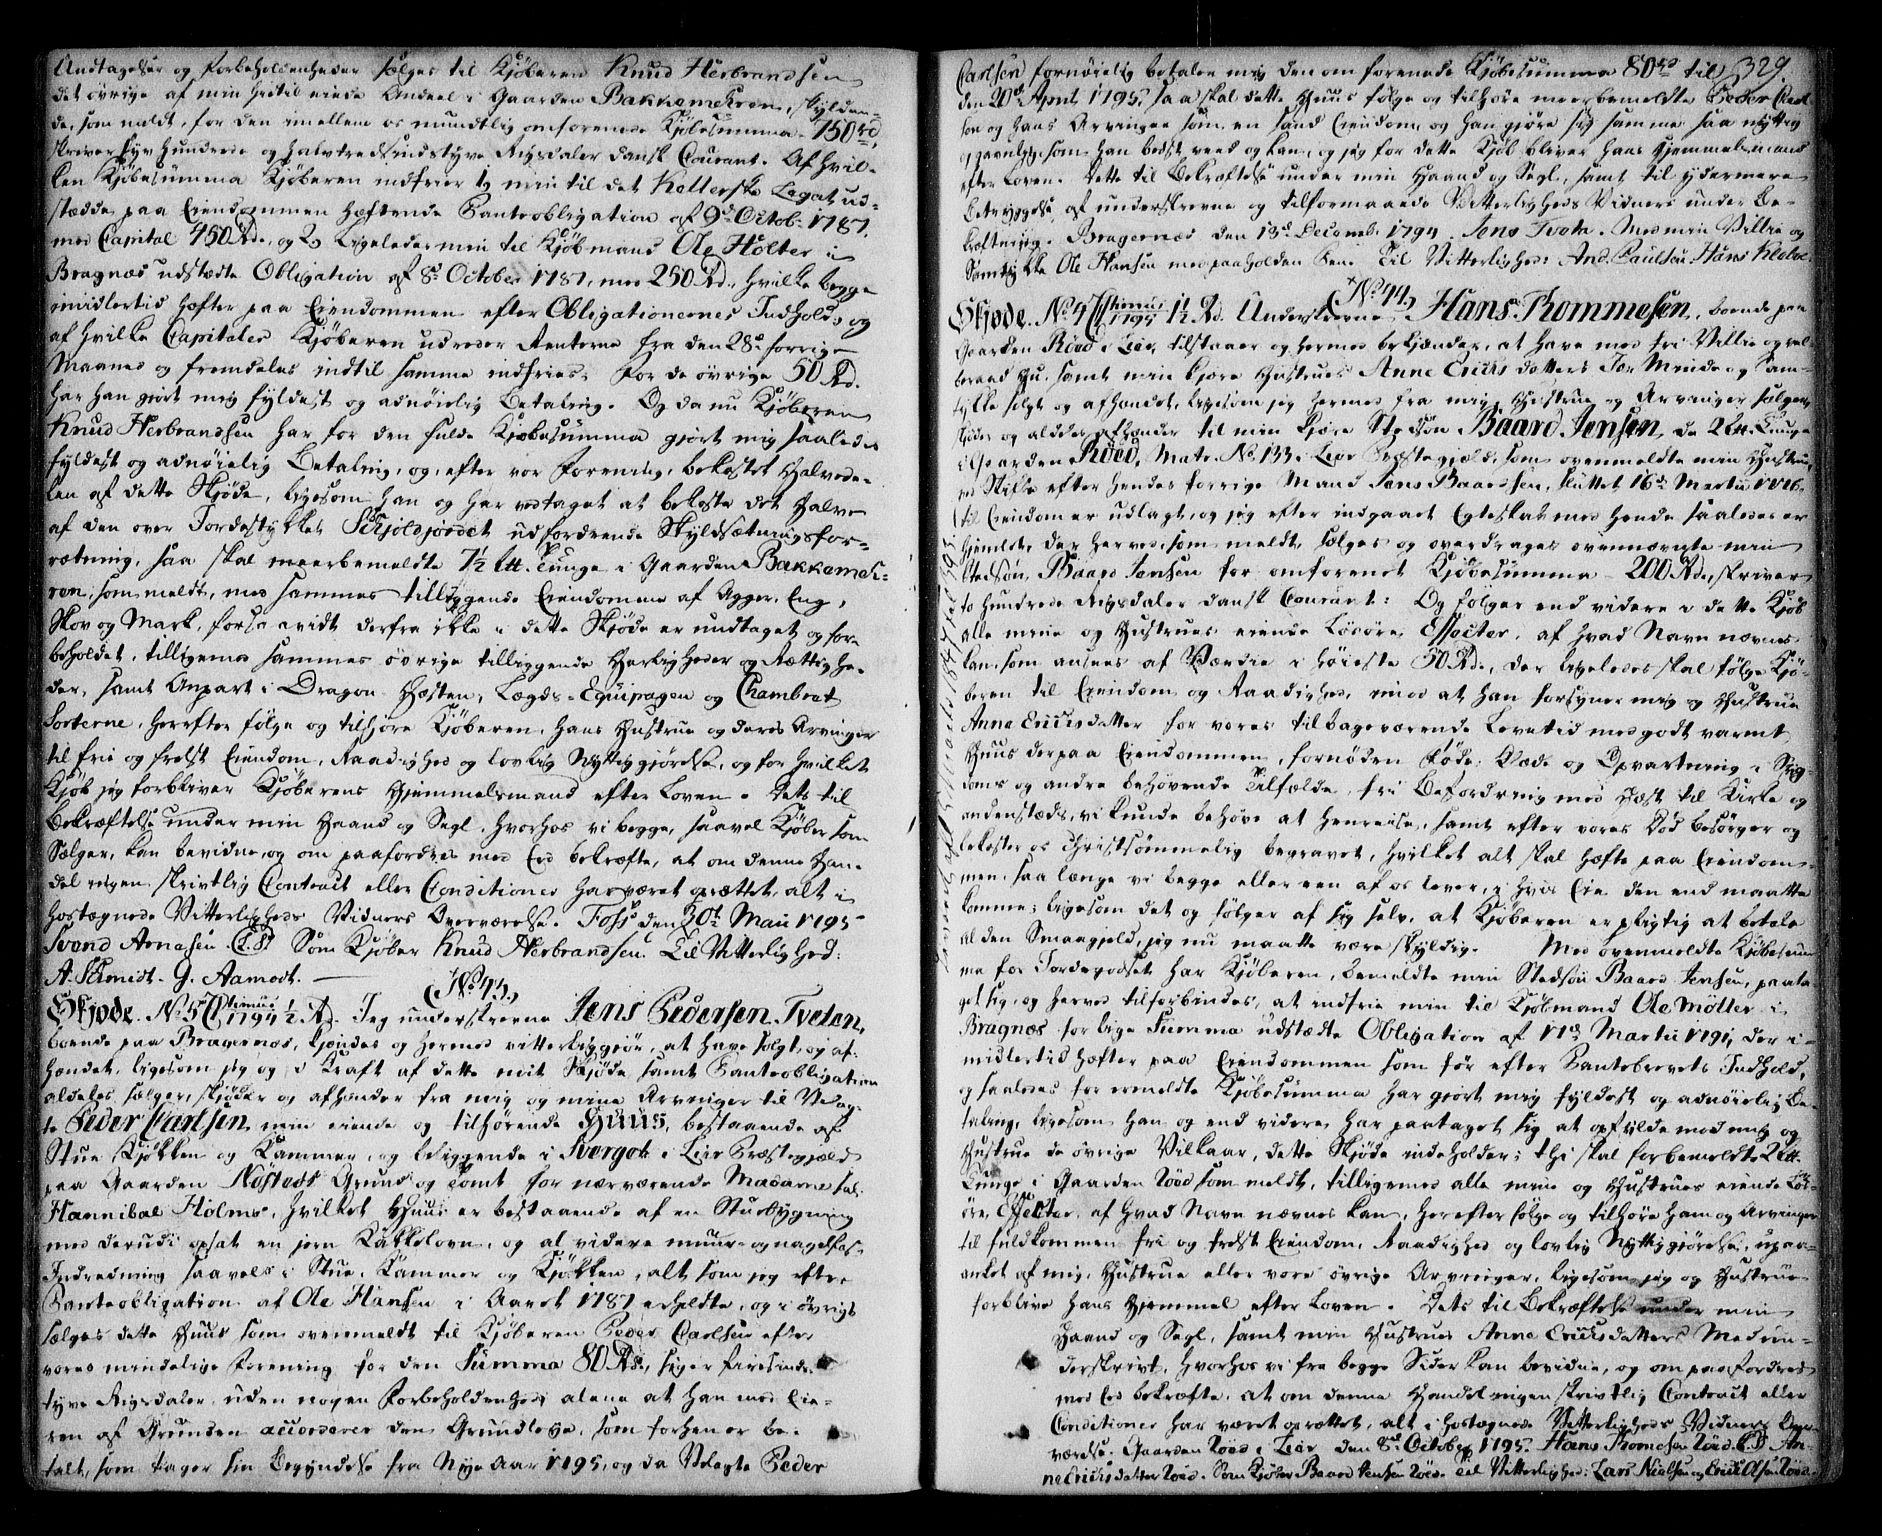 Undtagelser og Forbeholdenheder sælges til Kjöberen Knud Herbrandsen
det øvrige af min hidtil eiede Andeel i Gaarden Bakkemekren, skylden-
de, som meldt, for den imellem os mundtlig omforenede Kjöbesumma 750 rd,
skriver syv hundrede og halvtredsindstyve Rigsdaler dansk Courant. Af hvil-
ken Kjöbesumma Kjöberen indfrier 1, min til det Kelterske Legat ud-
stædde paa Eiendommen hæftende Panteobligation af 9d Octob: 1787.
med Capital 450 Rd., og 2, ligeledes min til Kjöbmand Ole Holter i
Bragnæs udstædte Obligation af 8d October 1787, med 250 Rd., hvilke begge
imidlertid hæfter paa Eiendommen efter Obligationernes Indhold, og
af hvilke Capitaler Kjöberen udreder Renterne fra den 28d forrige
Maaned og fremdeles indtil samme indfries. For de øvrige 50 Rd.
har han gjort mig fyldest og adnøielig Betaling. Og da nu Kjöberen
Knud Herbrandsen har for den fulde Kjøbesumma gjort mig saaledes
fyldest og adnøielig Betaling, og, efter vor Forening, bekostet Halvede-
len af dette Skjøde, ligesom han og har vedtaget at bekoste det halve
af den over Jordestykket Schjoldjordet udfordrende Skyldsætningsfor-
retning, saa skal meerbemeldte 7½ Lt. Tunge i Gaarden Bakkemek-
ren, som meldt, med sammes tilliggende Eiendomme af Agger, Eng,
Skov og Mark, forsaavidt derfra ikke i dette Skjøde er undtaget og for-
beholdet, tilligemed sammes øvrige tilliggende Herligheder og Rettighe-
der, samt Anpart i Dragon Hesten, Lægds-Equipagen og Chambret
Sorterne, herefter følge og tilhøre Kjöberen, hans Hustrue og deres Arvinger
til frie og frelst Eiendom, Raadighed og lovlig Nyttiggjørelse, og for hvilket
Kjøb jeg forbliver Kjöberens Hjemmelsmand efter Loven. Dets til
Bekræftelse under min Haand og Segl, hvorhos vi begge, saavel Kjöber som
Sælger, kan bevidne, og om paafordres med Eed bekræfte, at om denne Han-
del ingen skrivtlig Contract eller Conditioner har været oprettet, alt i
hostegnede Vitterligheds Vidners Overværelse. Foss den 30t Maii 1795
Svend Arnesen. (L.S.) Som Kjøber Knud Herbrandsen. Til Vitterlighed:
A. Schmidt. G. Aamodt.
(No 43.)
Skjøde. No 5 Ctimus 1794 ½ Rd. Jeg underskrevne Jens Pedersen Tveten,
boende paa Bragernæs, kjendes og hermed vitterliggjør, at have solgt, og af-
hændet, ligesom jeg og i Kraft af dette mit Skjøde samt Panteobligation
aldeles sælger, skjøder og afhænder fra mig og mine Arvinger til Velag-
te Peder Carlsen min eiende og tilhørende Huus, bestaaende af
Stue Kjøkken og Kammer, og beliggende i Svergot i Lier Præstegjæld
paa Gaarden Nøsteds Grund og Tomt for nærværende Madame sal.
Hannibal Holms, hvilket Huus er bestaaende af en Stuebygning
med derudi opsat en jern Kakkelovn, og al videre muur- og nagelfast
Indredning saavel i Stue, Kammer og Kjøkken, alt som jeg efter
Panteobligation af Ole Hansen i Aaret 1787 erholdte, og i øvrigt
sælges dette Huus som ovenmeldt til Kjöberen Peder Carlsen efter
vores mindelige Forening for den Summa 80 Rd., siger fiiresinds-
tyve Rigsdaler, uden nogen Forbeholdenhed, alene at han med Eie-
ren af Grunden accorderer den Grundleye, som forhen er be-
talt, som tager sin Begyndelse fra Nye Aar 1795, og da Velagte Peder
329.
Carlsen fornøielig betaler mig den omforenede Kjøbesumma 80 rd til
den 20d April 1795, saa skal dette Huus følge og tilhøre meerbemeldte Peder Carl-
sen og hans Arvinger som en sand Eiendom, og han gjøre sig samme saa nyttig
og gavnlig, som han bedst veed og kan, og jeg for dette Kjøb bliver hans Hjemmelsmand
efter Loven. Dette til Bekræftelse under min Haand og Segl, samt til ydermere
Betryggelse af underskrevne og tilformaaede Vitterligheds Vidner under Be-
kræftning. Bragernæs den 13d Decemb: 1794. Jens Tveten. Med min Villie og
Samtykke Ole Hansen med paaholden Pen. Til Vitterlighed: And. Paulsen Hans Kleve
(No 44.)
Skjøde. No 4 Ctimus 1795 1½ Rd. Underskrevne Hans Thommesen, boende paa
Gaarden Röed i Lier, tilstaaer og hermed bekjænder, at have med fri Villie og vel-
beraad Hu, samt min kjære Hustrues Anne Erichsdatters Ja, Minde og Sam-
tykke solgt og afhændet, ligesom jeg hermed fra mig, Hustrue og Arvinger sælger,
skjøder og aldeles afhænder til min kjære Stedsøn Baard Jensen, de 2 Lt. Tunge
i Gaarden Röed, Matr. No. 133 i Lier Præstegjæld, som ovenmeldte min Hustrue
ved Skifte efter hendes forrige Mand Jens Baardsen, sluttet 16d Martii
til Eiendom er udlagt, og jeg efter indgaaet Egteskab med hende saaledes er
hjemlet, der herved, som meldt, sælges og overdrages ovennævnte min
Stedsøn, Baard Jensen for omforenet Kjøbesumma 200 Rd., skriver
to Hundrede Rigsdaler dansk Courant: Og følger end videre i dette Kjøb
alle mine og Hustrues eiende Løsöre Effecter, af hvad Navn nævnes
kan, som ansees af Værdie i høieste 50 Rd., der ligeledes skal følge Kjø-
beren til Eiendom og Raadighed, imod at han forsyner mig og Hustrue
Anne Erichsdatter for vores tilbageværende Levetid med godt varmt
Huus der paa Eiendommen, fornøden Føde, Klæde og Opvartning i Syg-
doms og andre behøvende Tilfælde, fri Befordring med Hest til Kirke og
andenstæds, vi kunde behøve at henreise, samt efter vores Død besørger og
bekoster os christsömmelig begravet, hvilket alt skal hæfte paa Eiendom-
men, saa længe vi begge eller een af os lever, i hvis Eie den end maatte
komme; ligesom det og følger af sig selv, at Kjøberen er pligtig at betale
al den Smaagjeld, jeg nu maatte være skyldig. Med ovenmeldte Kjøbesum-
ma for Jordegodset har Kjøberen, bemeldte min Stedsön Baard Jensen, paata-
get sig, og herved tilforbindes, at indfrie min til Kjöbmand Ole Möller i
Bragnæs for lige Summa udstædte Obligation af 11d Martii 1791, der i-
midlertid hæfter paa Eiendommen som før efter Pantebrevets Indhold,
og saaledes for ermeldte Kjøbesumma har gjort mig fyldest og adnøielig Be-
taling, ligesom han og end videre har paataget sig at opfylde mod mig og
Hustrue de øvrige Vilkaar, dette Skjøde indeholder; thi skal forbemeldte 2 Lt.
Tunge i Gaarden Röed som meldt, tilligemed alle mine og Hustrues eiende Løs-
öre Effecter, af hvad Navn nævnes kan, herefter følge og tilhøre ham og Arvinger
til fuldkommen fri og frelst Eiendom, Raadighed og lovlig Nyttiggjørelse, upaa-
anket af mig, Hustrue eller vore øvrige Arvinger, ligesom jeg og Hustrue
forblive hans Hjemmel efter Loven. Dets til Bekræftelse under min
Haand og Segl, samt min Hustrues Anne Erichsdatters Medun-
derskrivt, hvorhos vi fra begge Sider kan bevidne, og om paafordres
med Eed bekræfte, at om denne Handel ingen skrivtlig Contract eller
Conditioner har været oprettet, alt i hostegnede Vitterligheds Vidners Over-
værelse. Gaarden Röed i Lier den 8d October 1795. Hans Thomesen Röed (L.S.) An-
ne Erichsdatter Röed. Som Kjøber Baard Jensen Röed. Til Vitterlighed: Lars Nielsen og Erich Olsen Röed.